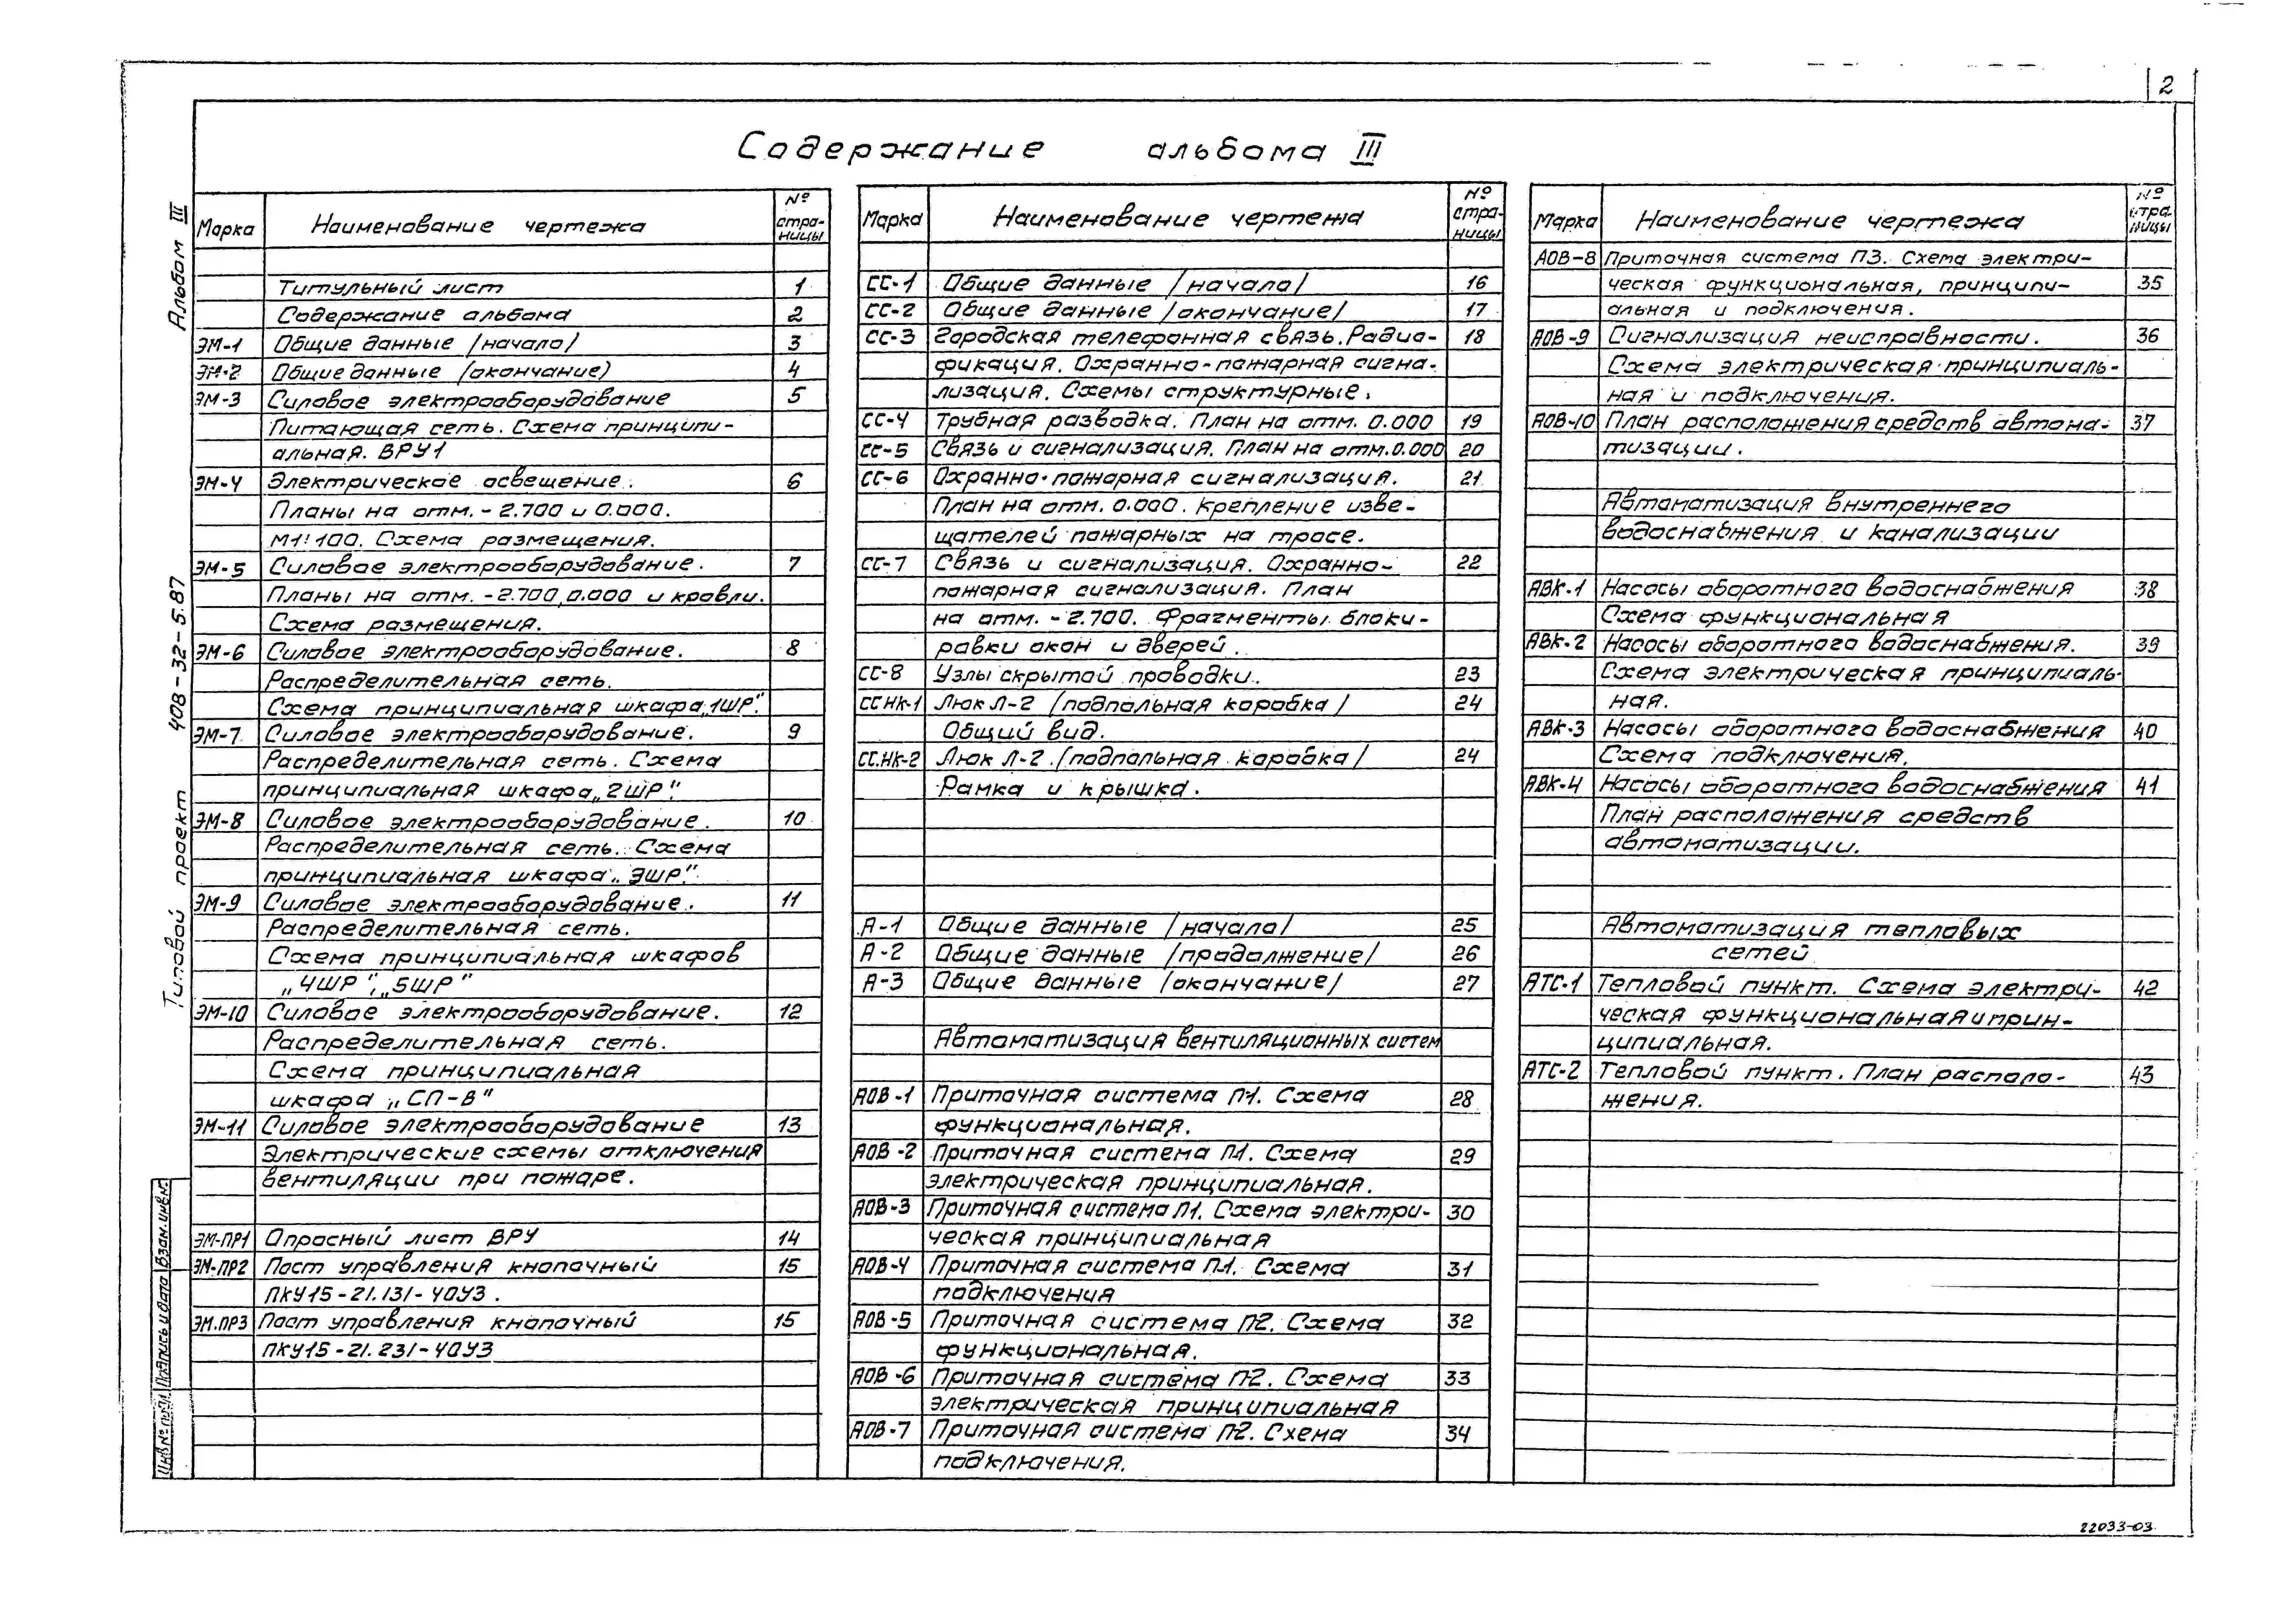 2
Содержание альбома III
Альбом III
Типовой проект 408-32-5.87
Взам. инв.№
Подпись и дата
Инв № подл.
Марка Наименование чертежа № страницы
Титульный лист 1
Содержание альбома 2
ЭМ-1 Общие данные /начало/ 3
ЭМ-2 Общие данные /окончание/ 4
ЭМ-3 Силовое электрооборудование 5
Питающая сеть. Схема принципи-
альная. ВРУ1
ЭМ-4 Электрическое освещение. 6
Планы на отм. - 2.700 и 0.000.
М1:100. Схема размещения.
ЭМ-5 Силовое электрооборудование. 7
Планы на отм. -2.700, 0.000 и кровли.
Схема размещения.
ЭМ-6 Силовое электрооборудование. 8
Распределительная сеть.
Схема принципиальная шкафа „1ШР".
ЭМ-7 Силовое электрооборудование. 9
Распределительная сеть. Схема
принципиальная шкафа „2ШР"
ЭМ-8 Силовое электрооборудование. 10
Распределительная сеть. Схема
принципиальная шкафа „3ШР".
ЭМ-9 Силовое электрооборудование. 11
Распределительная сеть.
Схема принципиальная шкафов
„4ШР", „5ШР"
ЭМ-10 Силовое электрооборудование. 12
Распределительная сеть.
Схема принципиальная
шкафа „СП-В"
ЭМ-11 Силовое электрооборудование 13
Электрические схемы отключения
вентиляции при пожаре.
ЭМ-ПР1 Опросный лист ВРУ 14
ЭМ-ПР2 Пост управления кнопочный 15
ПКУ15-21.131-40У3.
ЭМ.ПР3 Пост управления кнопочный 15
ПКУ15-21.231-40У3
Марка Наименование чертежа № страницы
СС-1 Общие данные /начало/ 16
СС-2 Общие данные /окончание/ 17
СС-3 Городская телефонная связь. Радио- 18
фикация. Охранно-пожарная сигна-
лизация. Схемы структурные.
СС-4 Трубная разводка. План на отм. 0.000 19
СС-5 Связь и сигнализация. План на отм. 0.000 20
СС-6 Охранно-пожарная сигнализация. 21
План на отм. 0.000. Крепление изве-
щателей пожарных на тросе.
СС-7 Связь и сигнализация. Охранно- 22
пожарная сигнализация. План
на отм. - 2.700. Фрагменты блоки-
ровки окон и дверей.
СС-8 Узлы скрытой проводки. 23
СС.НК-1 Люк Л-2 /подпольная коробка/ 24
Общий вид.
СС.НК-2 Люк Л-2 /подпольная коробка/ 24
Рамка и крышка.
А-1 Общие данные /начало/ 25
А-2 Общие данные /продолжение/ 26
А-3 Общие данные /окончание/ 27
Автоматизация вентиляционных систем
АОВ-1 Приточная система П1. Схема 28
функциональная.
АОВ-2 Приточная система П1. Схема 29
электрическая принципиальная.
АОВ-3 Приточная система П1. Схема электри- 30
ческая принципиальная
АОВ-4 Приточная система П1. Схема 31
подключения
АОВ-5 Приточная система П2. Схема 32
функциональная.
АОВ-6 Приточная система П2. Схема 33
электрическая принципиальная
АОВ-7 Приточная система П2. Схема 34
подключения.
Марка Наименование чертежа № страницы
АОВ-8 Приточная система П3. Схема электри-
ческая функциональная, принципи- 35
альная и подключения.
АОВ-9 Сигнализация неисправности. 36
Схема электрическая принципиаль-
ная и подключения.
АОВ-10 План расположения средств автома- 37
тизации.
Автоматизация внутреннего
водоснабжения и канализации
АВК-1 Насосы оборотного водоснабжения 38
Схема функциональная
АВК-2 Насосы оборотного водоснабжения. 39
Схема электрическая принципиаль-
ная.
АВК-3 Насосы оборотного водоснабжения 40
Схема подключения.
АВК-4 Насосы оборотного водоснабжения 41
План расположения средств
автоматизации.
Автоматизация тепловых
сетей
АТС-1 Тепловой пункт. Схема электри- 42
ческая функциональная и прин-
ципиальная.
АТС-2 Тепловой пункт. План располо- 43
жения.
22033-03